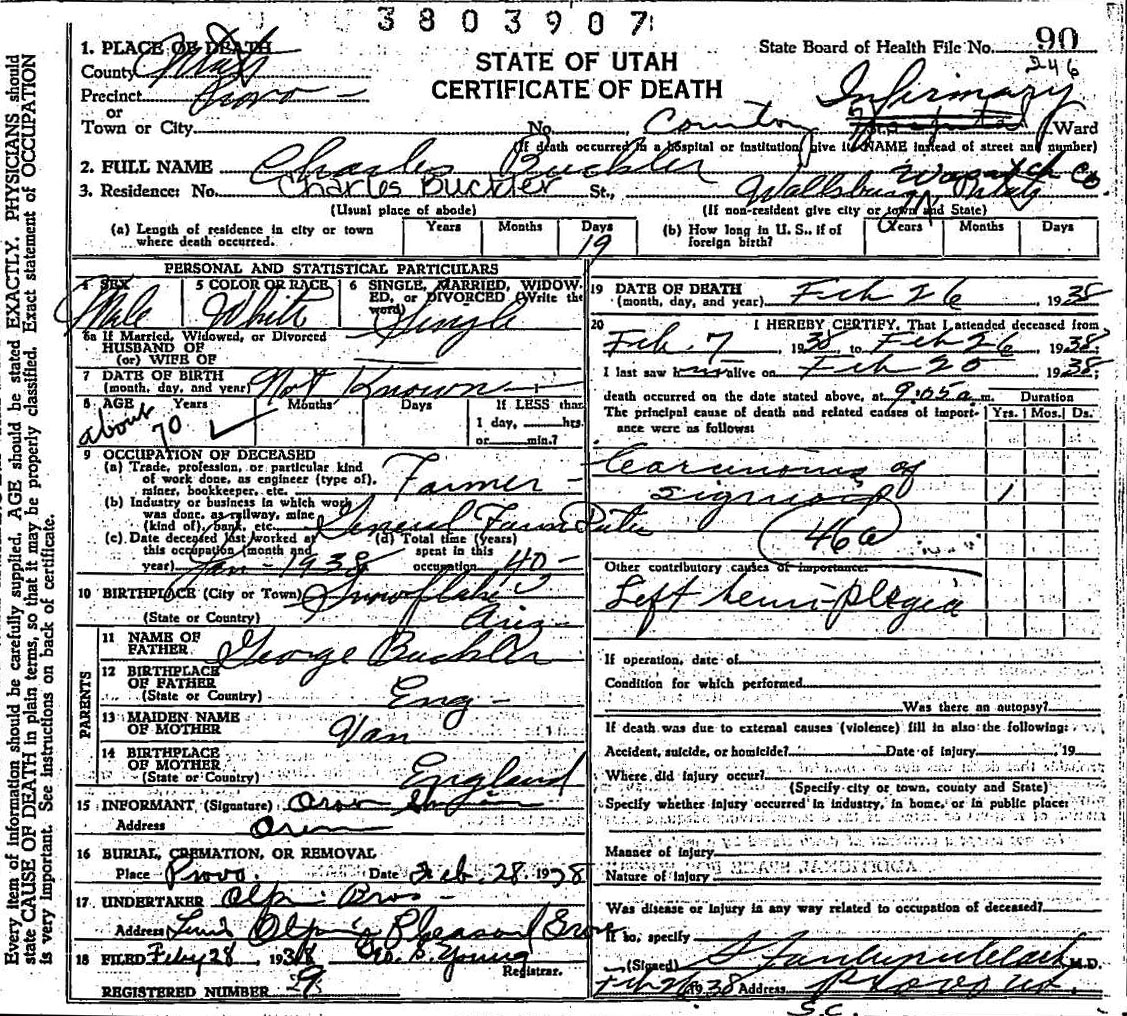 3803907
1. PLACE OF DEATH
County Utah
Precinct Provo
or
Town or City
STATE OF UTAH
CERTIFICATE OF DEATH
State Board of Health File No. 90
246
No. County Hospital Infirmary Ward
(If death occurred in a hospital or institution, give its NAME instead of street and number)
2. FULL NAME Charles Buckler
Charles Buckler
3. Residence: No. St., Wallsburg Wasatch Co. Utah
(Usual place of abode)
(If non-resident give city or town and State)
(a) Length of residence in city or town where death occurred. Years Months Days 19
(b) How long in U. S., if of foreign birth? Years Months Days
PERSONAL AND STATISTICAL PARTICULARS
4 SEX Male
5 COLOR OR RACE White
6 SINGLE, MARRIED, WIDOWED, or DIVORCED (Write the word) Single
6a If Married, Widowed, or Divorced
HUSBAND OF
(or) WIFE OF
7 DATE OF BIRTH
(month, day, and year) Not Known
8 AGE about 70 Years Months Days If LESS than 1 day, hrs. or min.?
9 OCCUPATION OF DECEASED
(a) Trade, profession, or particular kind of work done, as engineer (type of), miner, bookkeeper, etc. Farmer
(b) Industry or business in which work was done, as railway, mine (kind of), bank, etc. General Farm Duties
(c) Date deceased last worked at this occupation (month and year) Jan - 1938
(d) Total time (years) spent in this occupation 40
10 BIRTHPLACE (City or Town) Snowflake
(State or Country) Ariz
PARENTS
11 NAME OF FATHER George Buckler
12 BIRTHPLACE OF FATHER
(State or Country) Eng
13 MAIDEN NAME OF MOTHER Van
14 BIRTHPLACE OF MOTHER
(State or Country) England
15 INFORMANT (Signature)
Address Orem
16 BURIAL, CREMATION, OR REMOVAL
Place Provo Date Feb. 28. 1938
17 UNDERTAKER Olpin Bros
Address Olpin Pleasant Grove
18 FILED Feby 28, 1938 Young
Registrar.
REGISTERED NUMBER 29
19 DATE OF DEATH
(month, day, and year) Feb 26, 1938
20 I HEREBY CERTIFY, That I attended deceased from
Feb. 7, 1938, to Feb 26, 1938;
I last saw h alive on Feb 25 1938;
death occurred on the date stated above, at 9:05 a m.
Duration
The principal cause of death and related causes of importance were as follows: Yrs. Mos. Ds.
Carcinoma of
sigmoid 1
46a
Other contributory causes of importance:
Left hemi-plegia
If operation, date of
Condition for which performed
Was there an autopsy?
If death was due to external causes (violence) fill in also the following:
Accident, suicide, or homicide? Date of injury 19
Where did injury occur?
(Specify city or town, county and State)
Specify whether injury occurred in industry, in home, or in public place:
Manner of injury
Nature of injury
Was disease or injury in any way related to occupation of deceased?
If so, specify
(Signed) M.D.
Feb 26, 1938 Address Provo Ut.
S.C.
Every item of information should be carefully supplied. AGE should be stated EXACTLY. PHYSICIANS should
state CAUSE OF DEATH in plain terms, so that it may be properly classified. Exact statement of OCCUPATION
is very important. See instructions on back of certificate.